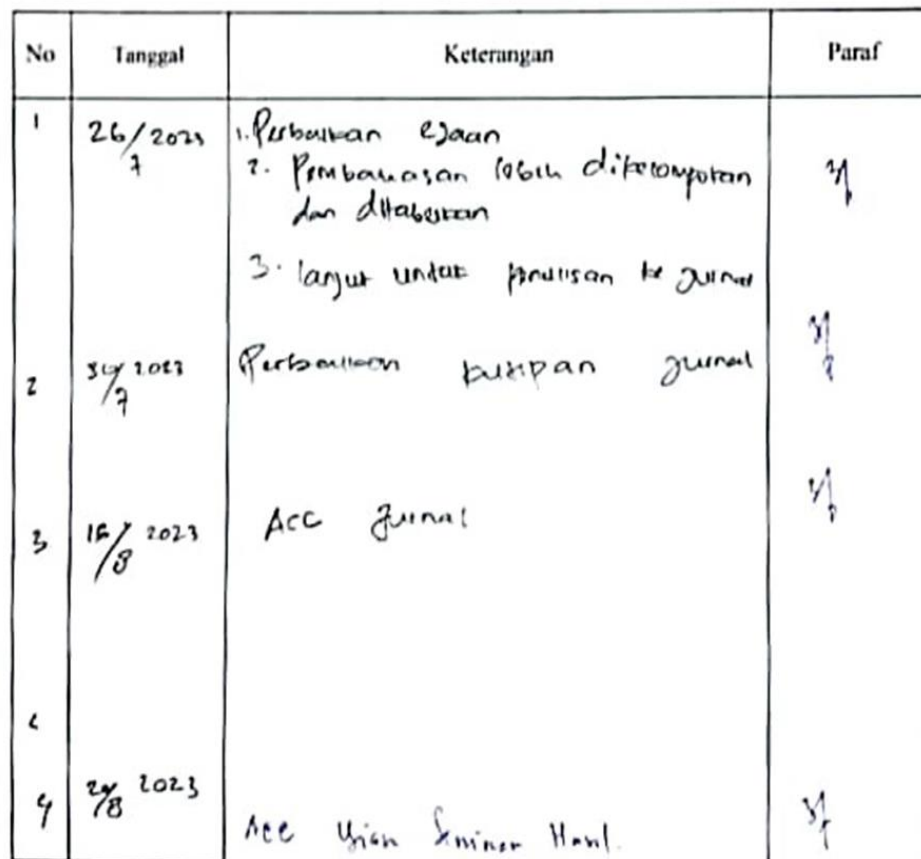 No Tanggal Keterangan Paraf
1 26/7 2023 1. Perbaikan ejaan
2. Pembahasan lebih dikelompokan
dan ditabelkan
3. lanjut untuk penulisan ke jurnal
2 7 2023 Perbaikan kutipan jurnal
3 /8 2023 Acc jurnal
4 /8 2023
Acc Ujian Seminar Hasil.